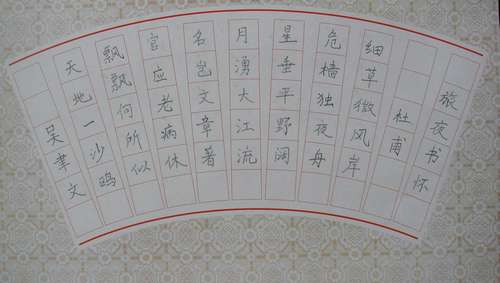 旅夜书怀
杜甫
细草微风岸
危樯独夜舟
星垂平野阔
月湧大江流
名岂文章著
官应老病休
飘飘何所似
天地一沙鸥
吴聿文